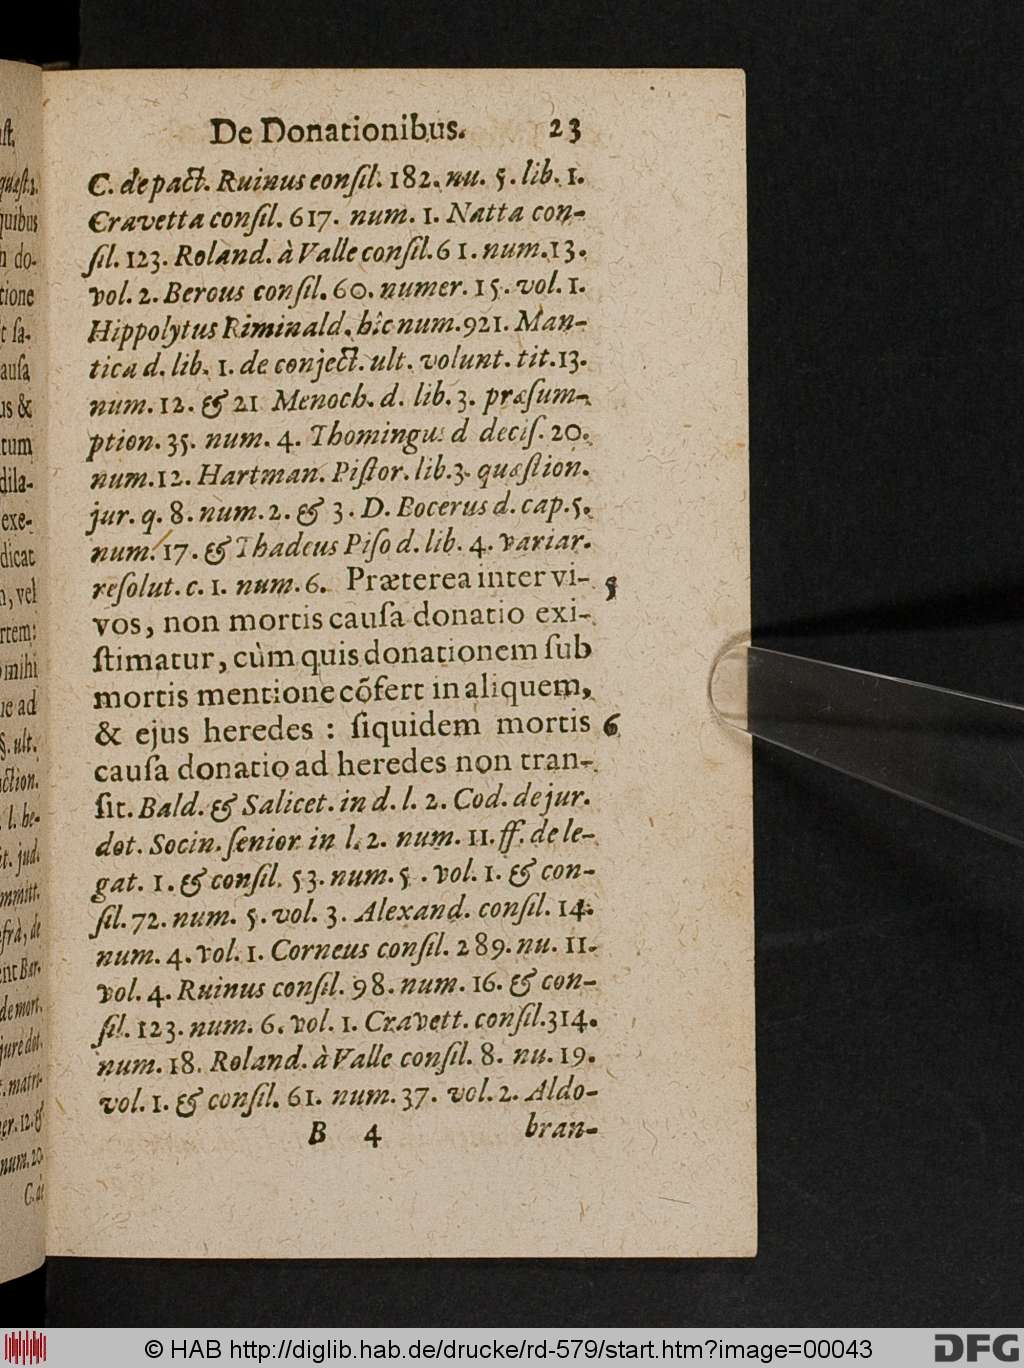 De Donationibus. 23
C. de pact. Ruinus consil. 182. nu. 5. lib. 1.
Cravetta consil. 617. num. 1. Natta con-
sil. 123. Roland. à Valle consil. 61. num. 13.
vol. 2. Berous consil. 60. numer. 15. vol. 1.
Hippolytus Riminald. hîc num. 921. Man-
tica d. lib. 1. de conject. ult. volunt. tit. 13.
num. 12. & 21 Menoch. d. lib. 3. præsum-
ption. 35. num. 4. Thomingus d decis. 20.
num. 12. Hartman. Pistor. lib. 3. quæstion.
jur. q. 8. num. 2. & 3. D. Bocerus d. cap. 5.
num. 17. & Thadeus Piso d. lib. 4. variar.
resolut. c. 1. num. 6. Præterea inter vi- 5
vos, non mortis causa donatio exi-
stimatur, cùm quis donationem sub
mortis mentione cõfert in aliquem,
& ejus heredes : siquidem mortis 6
causa donatio ad heredes non tran-
sit. Bald. & Salicet. in d. l. 2. Cod. de jur.
dot. Socin. senior in l. 2. num. 11. ff. de le-
gat. 1. & consil. 53. num. 5. vol. 1. & con-
sil. 72. num. 5. vol. 3. Alexand. consil. 14.
num. 4. vol. 1. Corneus consil. 289. nu. 11.
vol. 4. Ruinus consil. 98. num. 16. & con-
sil. 123. num. 6. vol. 1. Cravett. consil. 314.
num. 18. Roland. à Valle consil. 8. nu. 19.
vol. 1. & consil. 61. num. 37. vol. 2. Aldo-
B 4 bran-
© HAB http://diglib.hab.de/drucke/rd-579/start.htm?image=00043
DFG